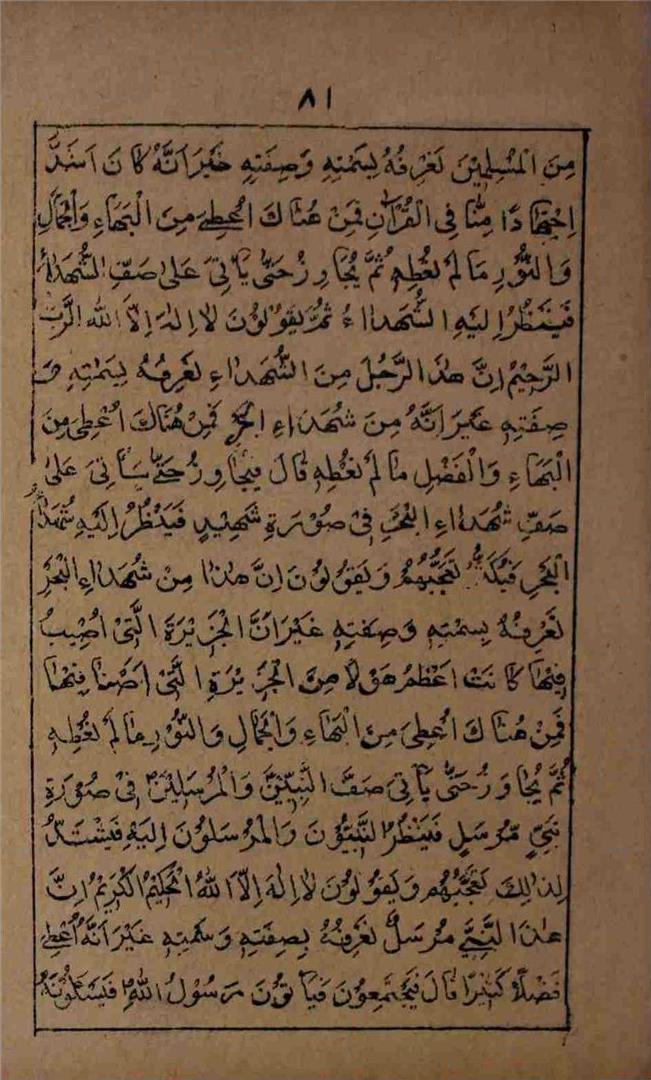 ٨١
مِنَ الْمُسْلِمِيْنَ نَعْرِفُهُ بِسَمْتِهِ وَصِفَتِهِ غَيْرَ اَنَّهُ كَانَ اَشَدَّ
اِجْتِهَادًا مِنَّا فِى الْقُرْاٰنِ فَمِنْ هُنَاكَ اُعْطِىَ مِنَ الْبَهَاءِ وَالْجَمَالِ
وَالنُّوْرِ مَا لَمْ نُعْطِهِ ثُمَّ يُجَاوِزُ حَتّٰى يَأْتِىَ عَلٰى صَفِّ الشُّهَدَاءِ
فَيَنْظُرُ اِلَيْهِ الشُّهَدَاءُ ثُمَّ يَقُوْلُوْنَ لَا اِلٰهَ اِلَّا اللهُ الرَّبُّ
الرَّحِيْمُ اِنَّ هٰذَا الرَّجُلَ مِنَ الشُّهَدَاءِ نَعْرِفُهُ بِسَمْتِهِ وَ
صِفَتِهِ غَيْرَ اَنَّهُ مِنْ شُهَدَاءِ الْبَحْرِ فَمِنْ هُنَاكَ اُعْطِىَ مِنَ
الْبَهَاءِ وَالْفَضْلِ مَا لَمْ نُعْطِهِ قَالَ فَيُجَاوِزُ حَتّٰى يَأْتِىَ عَلٰى
صَفِّ شُهَدَاءِ الْبَحْرِ فِىْ صُوْرَةِ شَهِيْدٍ فَيَنْظُرُ اِلَيْهِ شُهَدَاءُ
الْبَحْرِ فَيَكْثُرُ تَعَجُّبُهُمْ وَيَقُوْلُوْنَ اِنَّ هٰذَا مِنْ شُهَدَاءِ الْبَحْرِ
نَعْرِفُهُ بِسِمْتِهِ وَصِفَتِهِ غَيْرَ اَنَّ الْجَزِيْرَةَ الَّتِىْ اُصِيْبَ
فِيْهَا كَانَتْ اَعْظَمَ هَوْلًا مِنَ الْجَزِيْرَةِ الَّتِىْ اُصِبْنَا فِيْهَا
فَمِنْ هُنَاكَ اُعْطِىَ مِنَ الْبَهَاءِ وَالْجَمَالِ وَالنُّوْرِ مَا لَمْ نُعْطِهِ
ثُمَّ يُجَاوِزُ حَتّٰى يَأْتِىَ صَفَّ النَّبِيِّيْنَ وَالْمُرْسَلِيْنَ فِىْ صُوْرَةِ
نَبِىٍّ مُّرْسَلٍ فَيَنْظُرُ النَّبِيُّوْنَ وَالْمُرْسَلُوْنَ اِلَيْهِ فَيَشْتَدُّ
لِذٰلِكَ تَعَجُّبُهُمْ وَيَقُوْلُوْنَ لَا اِلٰهَ اِلَّا اللهُ الْحَكِيْمُ الْكَرِيْمُ اِنَّ
هٰذَا النَّبِىَّ مُرْسَلٌ نَعْرِفُهُ بِصِفَتِهِ وَسَمْتِهِ غَيْرَ اَنَّهُ اُعْطِىَ
فَضْلًا كَثِيْرًا قَالَ فَيَجْتَمِعُوْنَ فَيَأْتُوْنَ رَسُوْلَ اللهِ فَيَسْئَلُوْنَهُ